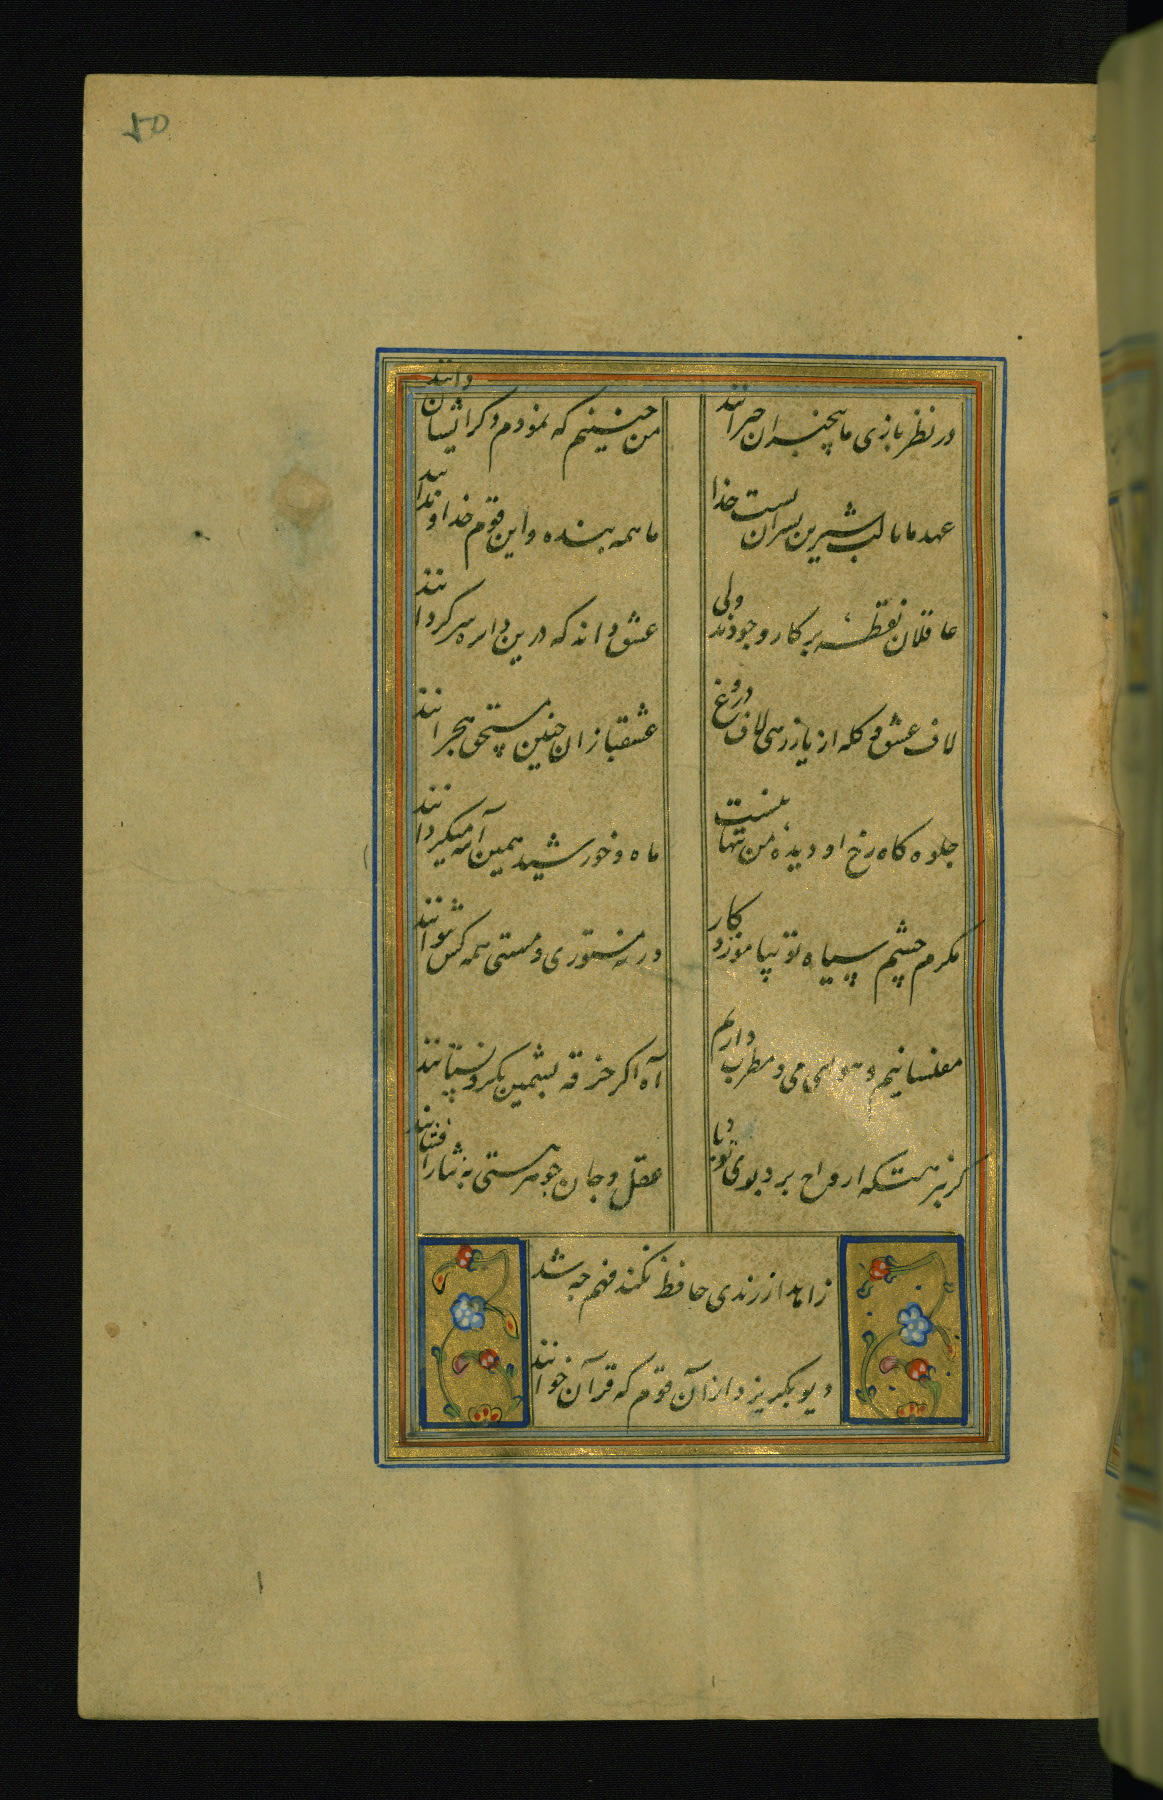 ۵۰
در نظر بازی ما بیخبران حیرانند
من چنینم که نمودم دگر ایشان دانند
عهد ما با لب شیرین پسران بست خدا
ما همه بنده و این قوم خداوندانند
عاقلان نقطه پرکار وجودند ولی
عشق داند که درین دایره سرگردانند
لاف عشق و گله از یار زهی لاف دروغ
عشقبازان چنین مستحق هجرانند
جلوه گاه رخ او دیده من تنها نیست
ماه و خورشید همین آینه میگردانند
مگرم چشم سیاه تو بیاموزد کار
ورنه مستوری و مستی همه کس نتوانند
مفلسانیم و هوای می و مطرب داریم
آه اگر خرقه پشمین بگرو نستانند
گر بنزهتگه ارواح برد بوی تو باد
عقل و جان جوهر هستی به نثار افشانند
زاهد ار زندی حافظ نکند فهم چه شد
دیو بگریزد از آن قوم که قرآن خوانند